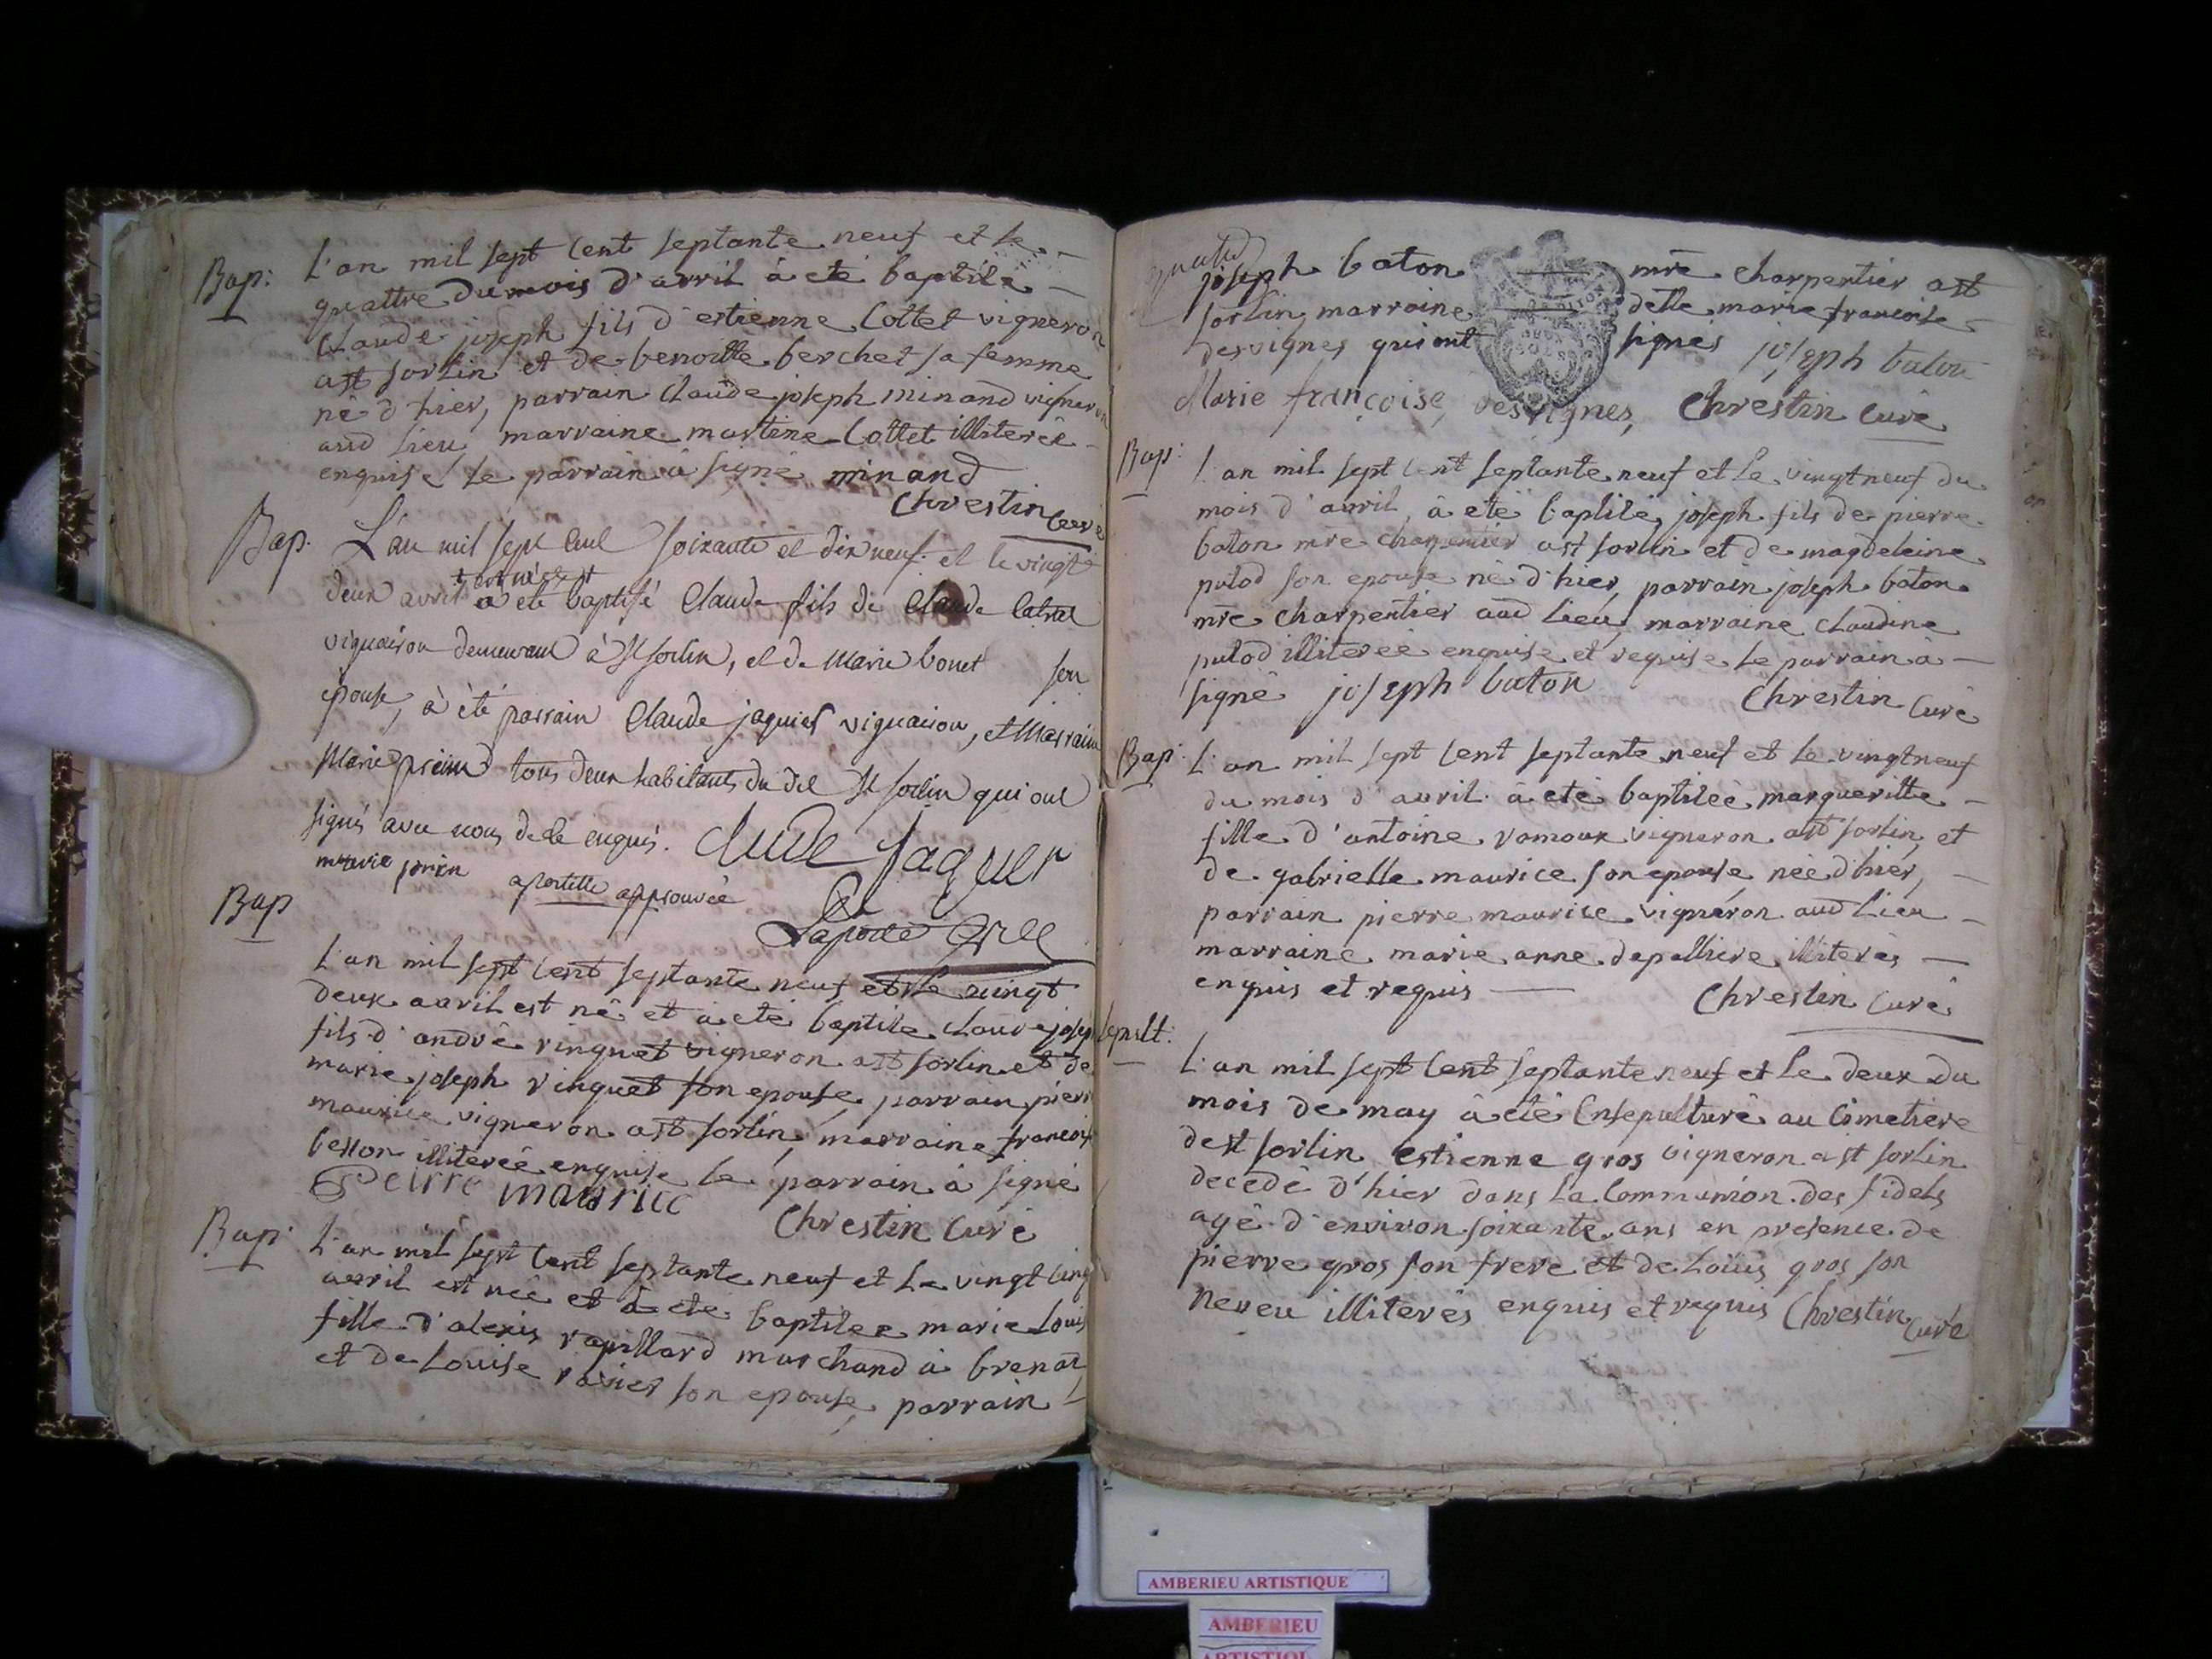 Bap: L'an mil sept cent septante neuf et le
quattre du mois d'avril à eté baptisé
Claude joseph fils d'estienne Cottet vigneron
a st sorlin et de benoitte berchet sa femme
né d'hier, parrain Claude joseph minand vigneron
aud lieu, marraine martine Cottet illiterée
enquise le parrain à signé minand
Chrestin Curé
Bap. L'an mil sept cent soixante et dix neuf et le vingt
deux avril a eté baptisé Claude fils de Claude
vignairon demeurant à St sorlin, et de Marie bonet son
epouse, à été parrain Claude jaquier vignairon, et Marraine
Marie tous deux habitants du dit St sorlin qui ont
signés avec nous de ce enquis. Clude jaquer
apostille approuvée
Laporte
Bap
L'an mil sept cent septante neuf et le vingt
deux avril est né et à eté baptisé Claude joseph
fils d'andré vinguet vigneron a st sorlin et de
marie joseph vinguet son epouse, parrain pierre
maurice vigneron a st sorlin, marraine francoise
besson illiterée enquise le parrain à signé
Peirre maurice
Chrestin Curé
Bap: L'an mil sept cent septante neuf et le vingt cinq
avril est née et à eté baptisée marie Louise
fille d'alexis rapillard marchand à brenaz
et de Louise ravier son epouse, parrain
joseph baton mre charpentier a st
sorlin, marraine delle marie francoise
desvignes qui ont signés joseph baton
Marie françoise desvignes, Chrestin Curé
Bap: L'an mil sept cent septante neuf et le vingt neuf du
mois d'avril, à eté baptisé, joseph fils de pierre
baton mre charpentier a st sorlin et de magdeleine
putod son epouse né d'hier, parrain joseph baton
mre charpentier aud lieu, marraine claudine
putod illiterée enquise et requise le parrain à
signé joseph baton Chrestin Curé
Bap: L'an mil sept cent septante neuf et le vingt neuf
du mois d'avril à eté baptisée margueritte
fille d'antoine vamoux vigneron a st sorlin, et
de gabrielle maurice son epouse née d'hier,
parrain pierre maurice vigneron aud lieu
marraine marie anne depalliere illiterés
enquis et requis Chrestin Curé
sepult:
L'an mil sept cent septante neuf et le deux du
mois de may à eté Ensepulturé au Cimetiere
de st sorlin estienne gros vigneron a st sorlin
decedé d'hier dans la Communion des fidels
agé d'environ soixante ans en presence de
pierre gros son frere et de Loüis gros son
neveu illiterés enquis et requis Chrestin Curé
AMBERIEU ARTISTIQUE
AMBERIEU
ARTISTIQUE